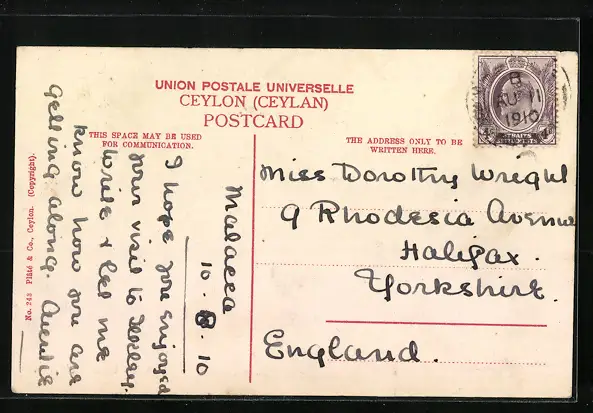 UNION POSTALE UNIVERSELLE
CEYLON (CEYLAN)
POSTCARD
THIS SPACE MAY BE USED
FOR COMMUNICATION.
THE ADDRESS ONLY TO BE
WRITTEN HERE.
8
AU 11
1910
STRAITS
SETTLEMENTS
Malacca
10.8.10
I hope you enjoyed
your visit to
Write & let me
know how you are
Getting along. Auntie
Miss Dorothy Wright
9 Rhodesia Avenue
Halifax.
Yorkshire.
England.
No. 243 Plâté & Co., Ceylon. (Copyright).